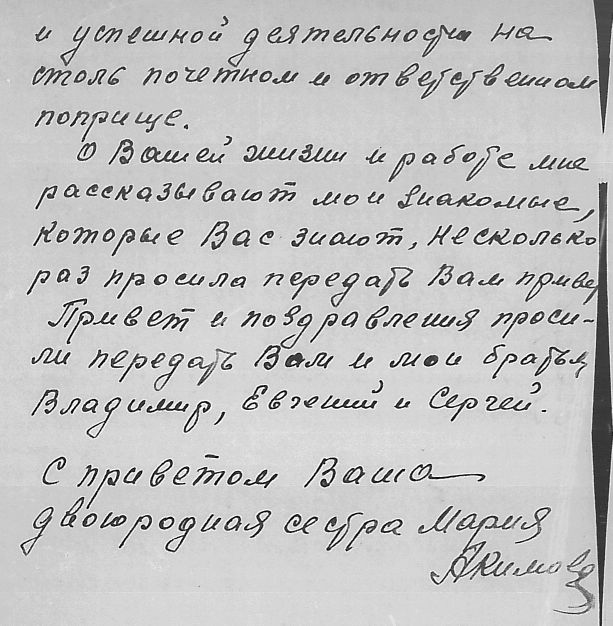 и успешной деятельности на
столь почетном и ответственном
поприще.
О Вашей жизни и работе мне
рассказывают мои знакомые,
которые Вас знают, несколько
раз просила передать Вам привет
Привет и поздравления проси-
ли передать Вам и мои братья
Владимир, Евгений и Сергей.
С приветом Ваша
двоюродная сестра Мария
Акимова